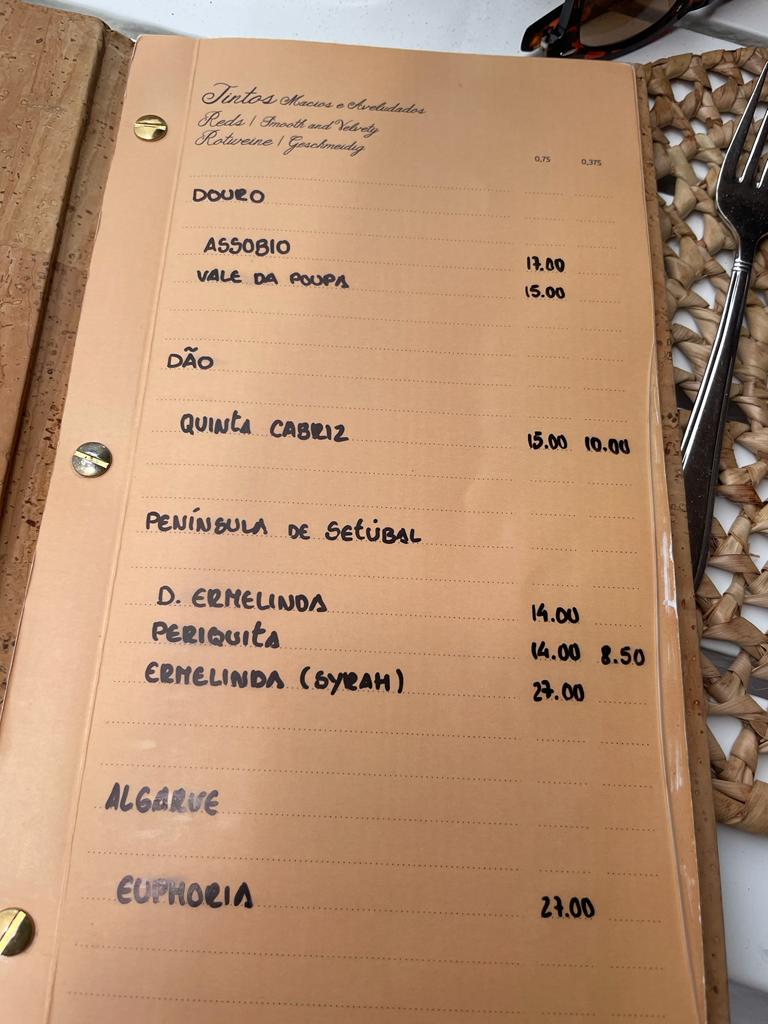 Tintos Macios e Aveludados
Reds | Smooth and Velvety
Rotweine | Geschmeidig
0,75 0,375
DOURO
ASSOBIO 17.00
VALE DA POUPA 15.00
DÃO
QUINTA CABRIZ 15.00 10.00
PENÍNSULA DE SETÚBAL
D. ERMELINDA 14.00
PERIQUITA 14.00 8.50
ERMELINDA (SYRAH) 27.00
ALGARVE
EUPHORIA 27.00